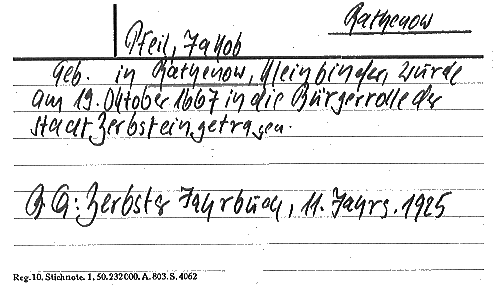 Rathenow
Pfeil, Jakob
Geb. in Rathenow, Kleinbinder, wurde
am 19. Oktober 1667 in die Bürgerrolle der
Stadt Zerbst eingetragen.
Zerbster Jahrbuch, 11. Jahrg. 1925
Reg. 10. Stichnote. 1, 50. 232000. A. 803. S. 4062